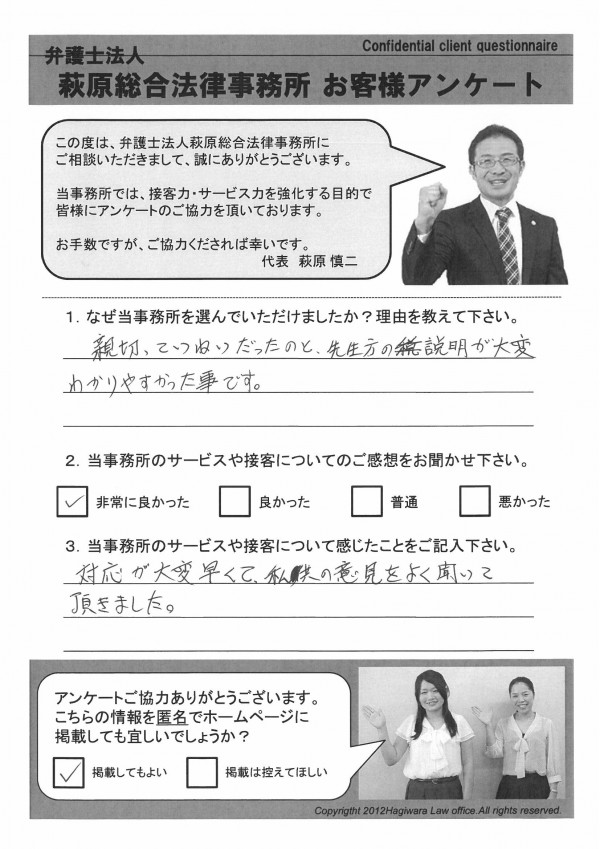 Confidential client questionnaire
弁護士法人
萩原総合法律事務所 お客様アンケート
この度は、弁護士法人萩原総合法律事務所に
ご相談いただきまして、誠にありがとうございます。
当事務所では、接客力・サービス力を強化する目的で
皆様にアンケートのご協力を頂いております。
お手数ですが、ご協力くだされば幸いです。
代表 萩原 慎二
1. なぜ当事務所を選んでいただけましたか?理由を教えて下さい。
親切、ていねいだったのと、先生方の説明が大変
わかりやすかった事です。
2. 当事務所のサービスや接客についてのご感想をお聞かせ下さい。
✓ 非常に良かった 良かった 普通 悪かった
3. 当事務所のサービスや接客について感じたことをご記入下さい。
対応が大変早くて、私共の意見をよく聞いて
頂きました。
アンケートご協力ありがとうございます。
こちらの情報を匿名でホームページに
掲載しても宜しいでしょうか?
✓ 掲載してもよい 掲載は控えてほしい
Copyrigtht 2012Hagiwara Law office.All rights reserved.